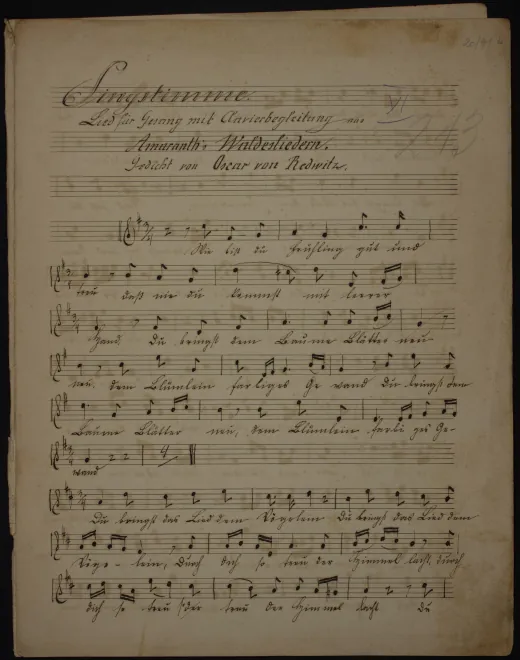 Singstimme.
Lied für Gesang mit Clavierbegleitung aus
Amaranth's Waldesliedern.
Gedicht von Oscar von Redwitz.
Wie bist du Frühling gut und
treu daß nie du kommst mit leerer
Hand. Du bringst dem Baume Blätter neu
neu, dem Blümlein farbiges Ge wand Du bringst dem
Baume Blätter neu, dem Blümlein farbi ges Ge-
wand
Du bringst das Lied dem Vögelein Du bringst das Lied dem
Vöge - lein, Durch dich so treu der Himmel lacht, durch
dich so treu der treu der Himmel lacht Du